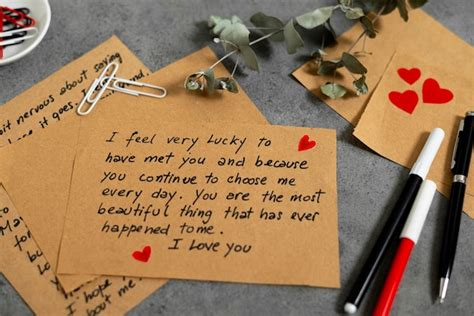 bit nervous about saying
I feel very lucky to
have met you and because
you continue to choose me
every day. You are the most
beautiful thing that has ever
happened to me.
I love you
I hope
about me